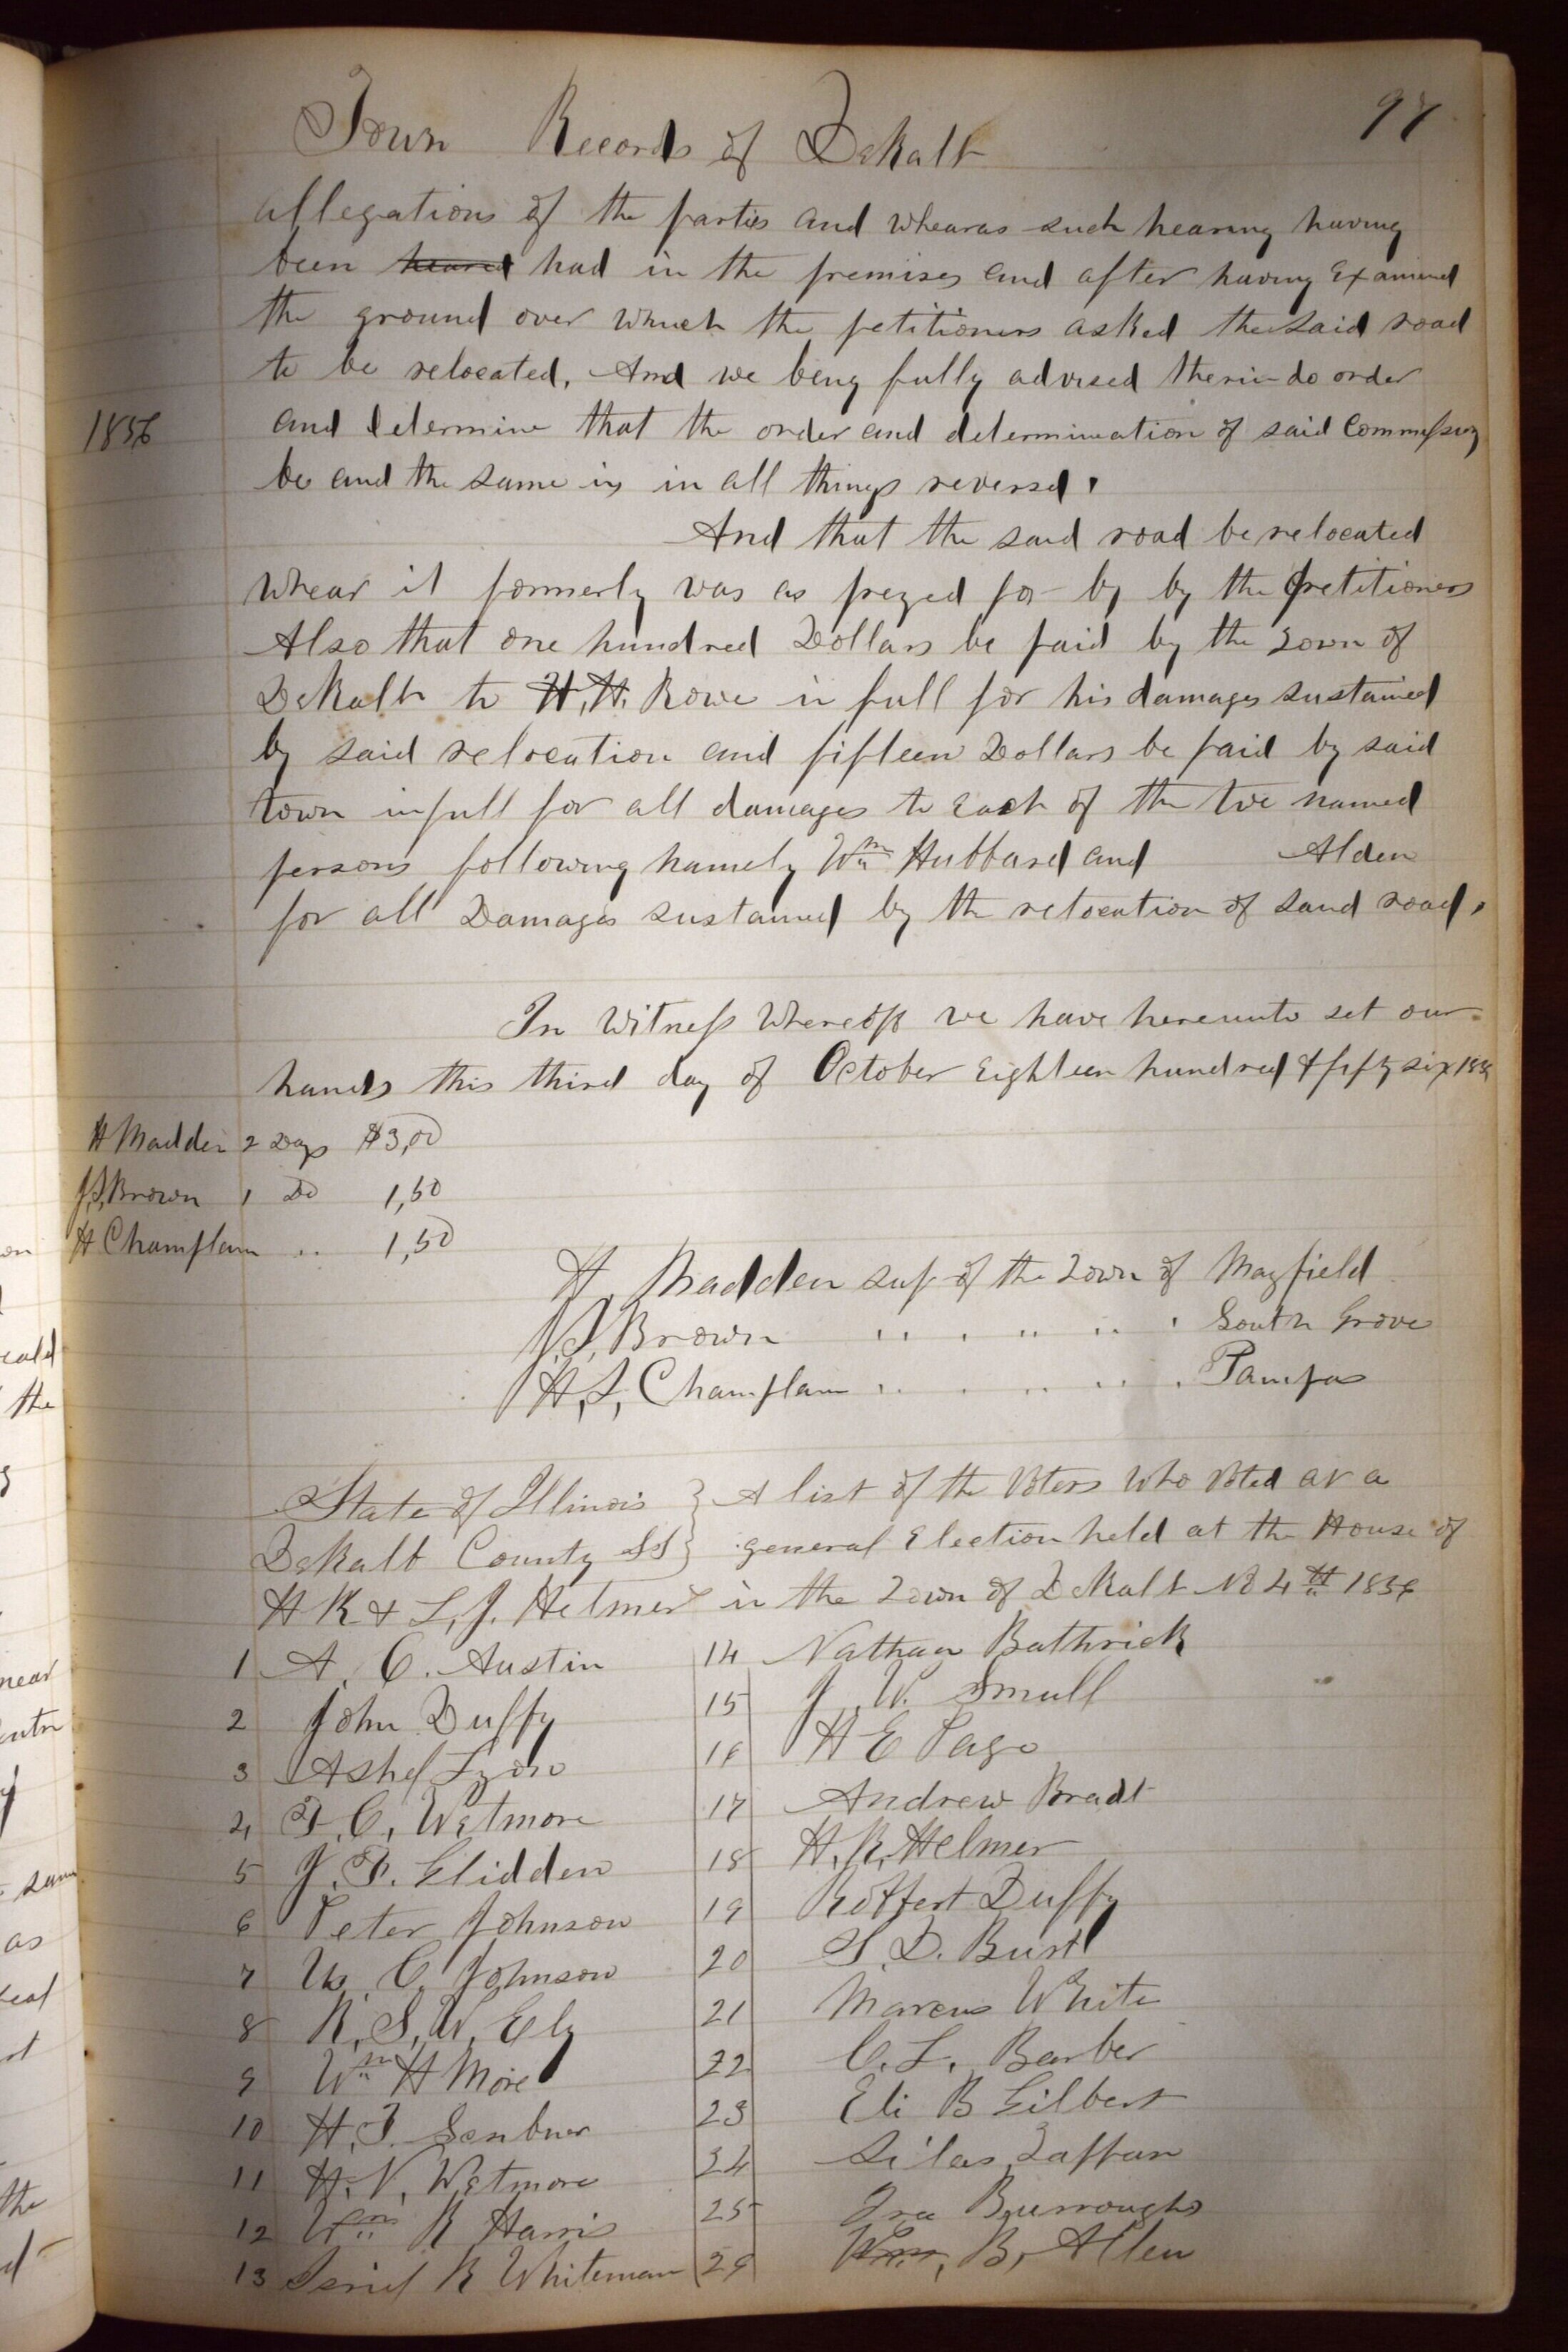 97
Town Records of DeKalb
allegations of the parties and whearas such hearing having
been heared had in the premises and after having Examined
the ground over which the petitioners asked the said road
to be relocated, And we being fully advised therein do order
1856
and determine that the order and determination of said Commissions
be and the same is in all things reversed.
And that the said road be relocated
Whear it formerly was as preyed for by by the petitioners
Also that one hundred Dollars be paid by the Town of
DeKalb to H. H. Rowe in full for his damages sustained
by said relocation and fifteen Dollars be paid by said
town in full for all damages to each of the two named
persons following namely Wm Hubbard and Alden
for all Damages sustained by the relocation of said road.
In Witness Whereoff we have hereunto set our
hands this third day of October Eighteen hundred & fifty six 1856
H Madden 2 Days $3,00
J,S,Brown 1 Do 1,50
H Champlain " 1,50
H, Madden sup of the Town of Mayfield
J.S. Brown " " " " " South Grove
H,S, Champlain " " " " " Pampas
State of Illinois } A list of the Voters Who Voted at a
DeKalb County SS } general Election held at the House of
H K & L, J. Helmer in the Town of DeKalb No 4th 1856
1 A, C. Austin
2 John Duffy
3 Ashel Lyon
4 T, C, Wetmore
5 J. F. Glidden
6 Peter Johnson
7 W. C. Johnson
8 R, S, W, Ely
9 Wm H More
10 H, T.
11 H. N, Wetmore
12 Wm R Harris
13 R Whiteman
14 Nathan Bathrick
15 J W. Small
16 H E Page
17 Andrew Bradt
18 H. K. Helmer
19 Robbert Duffy
20 S. D. Burt
21 Marcus White
22 C. L. Barber
23 Eli B Gilbert
24 Silas Tappan
25 Ira Burroughs
26 Wm, B, Allen